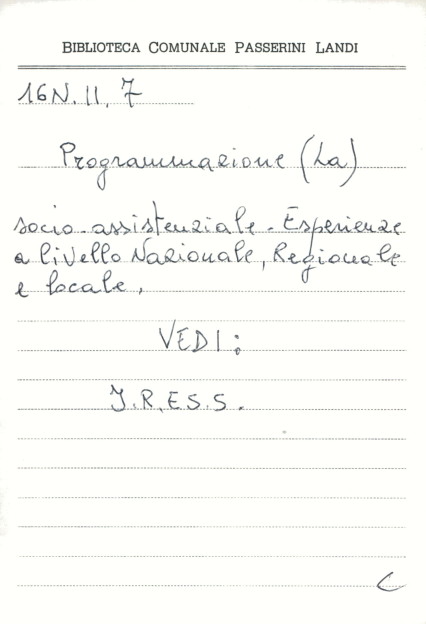 BIBLIOTECA COMUNALE PASSERINI LANDI
16N.II.7
Programmazione (La)
socio-assistenziale - Esperienze
a livello Nazionale, Regionale
e locale.
VEDI:
I.R.E.S.S.
C